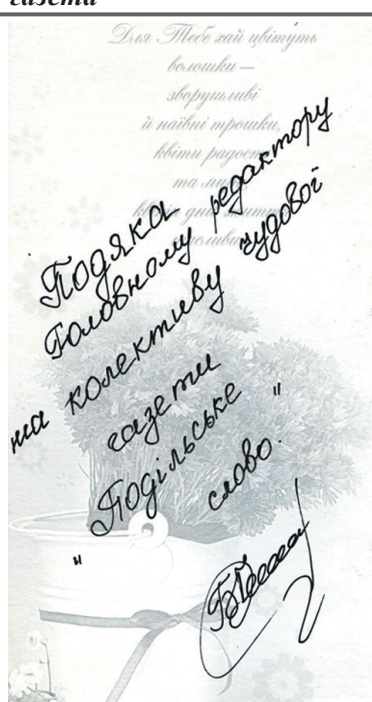 газета
Для Тебе хай цвітуть
волошки —
зворушливі
й наївні трошки,
квіти радості
та
Подяка
Головному редактору
та колективу чудової
газети
"Подільське
слово."